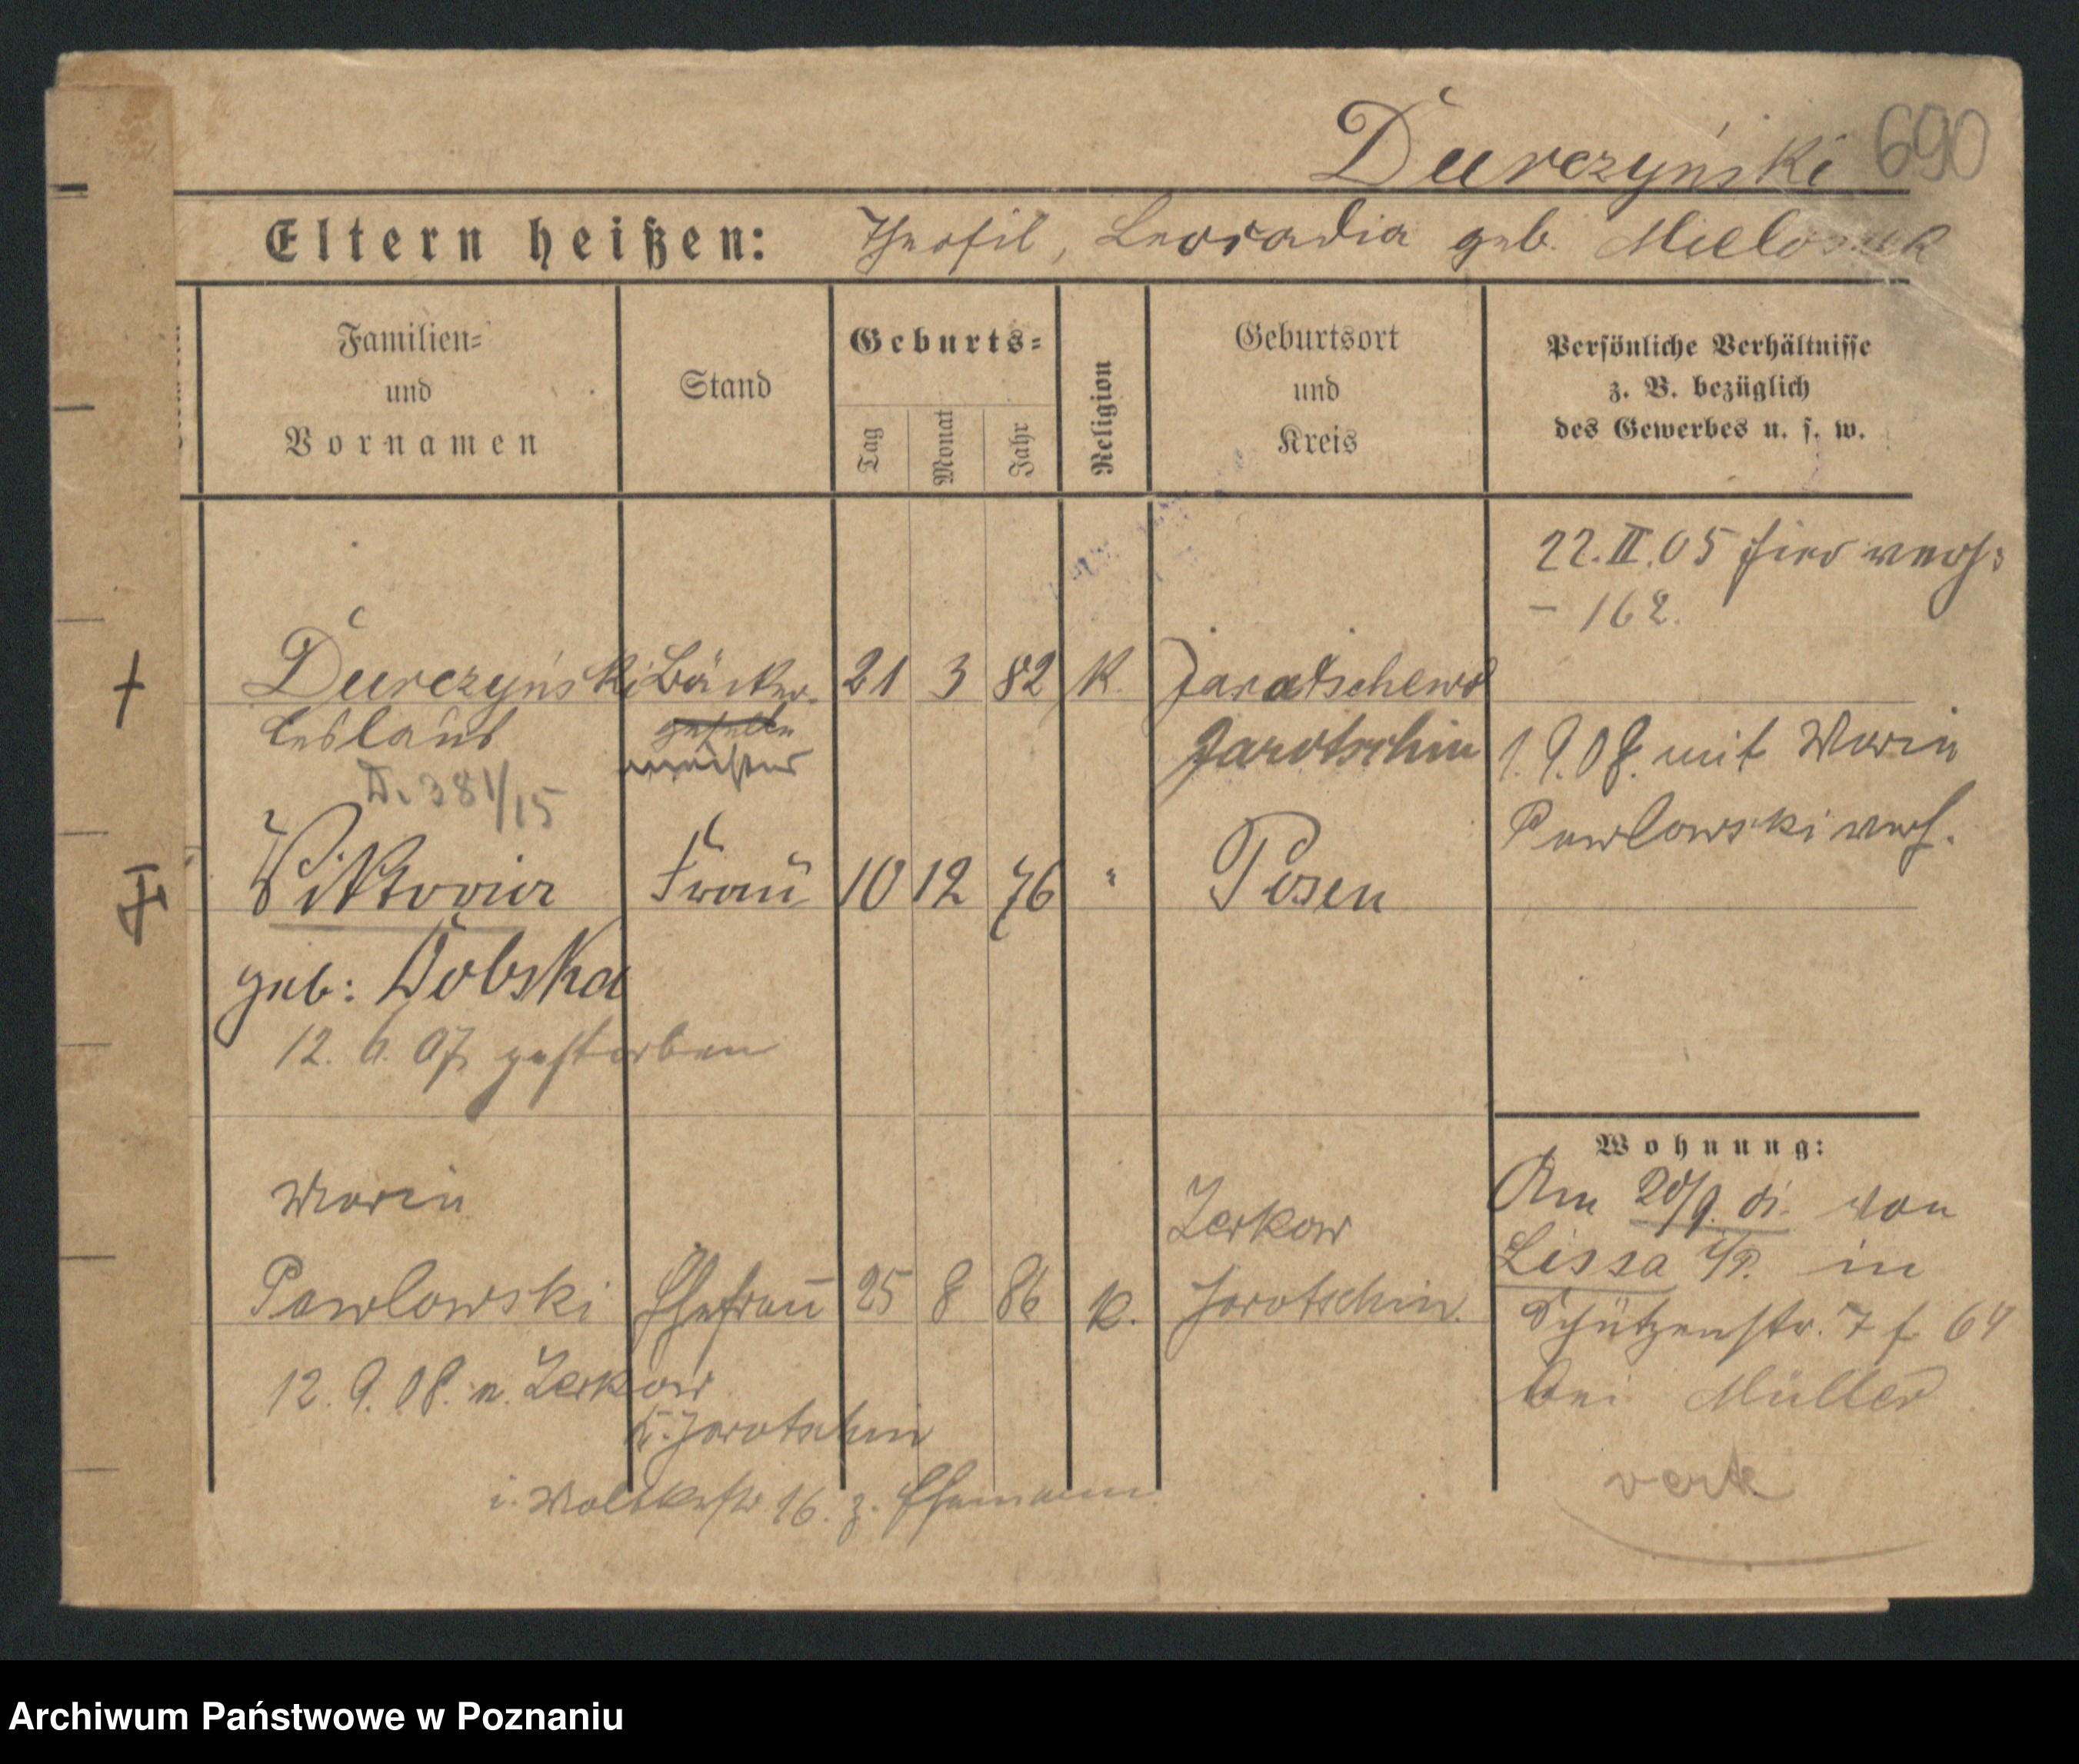 Durczyński 690
Eltern heißen: Theofil, Leocadia geb.
Familien=
und
Vornamen
Stand
Geburts=
Tag
Monat
Jahr
Religion
Geburtsort
und
Kreis
Persönliche Verhältnisse
z. B. bezüglich
des Gewerbes u. s. w.
22. II. 05 hier verh:
- 162.
Durczyński Bäcker 21 3 82 K. Jaratschewo
Ceslaus geselle Jarotschin
meister
1. 9. 08. mit Maria
Pawlowski verh.
D. 381/15
Viktoria Frau 10 12 76 " Posen
geb: Dobska
12. 6. 07 gestorben
Wohnung:
Am 20/9. 01. von
Lissa i/P. in
Schützenstr. 7 f 64
bei Müller
Maria Zerkow
Pawlowski Ehefrau 25 8 86 k. Jarotschin.
12. 9. 08. v. Zerkow
K. Jarotschin
i. Moltkestr 16. z. Ehemann.
Archiwum Państwowe w Poznaniu